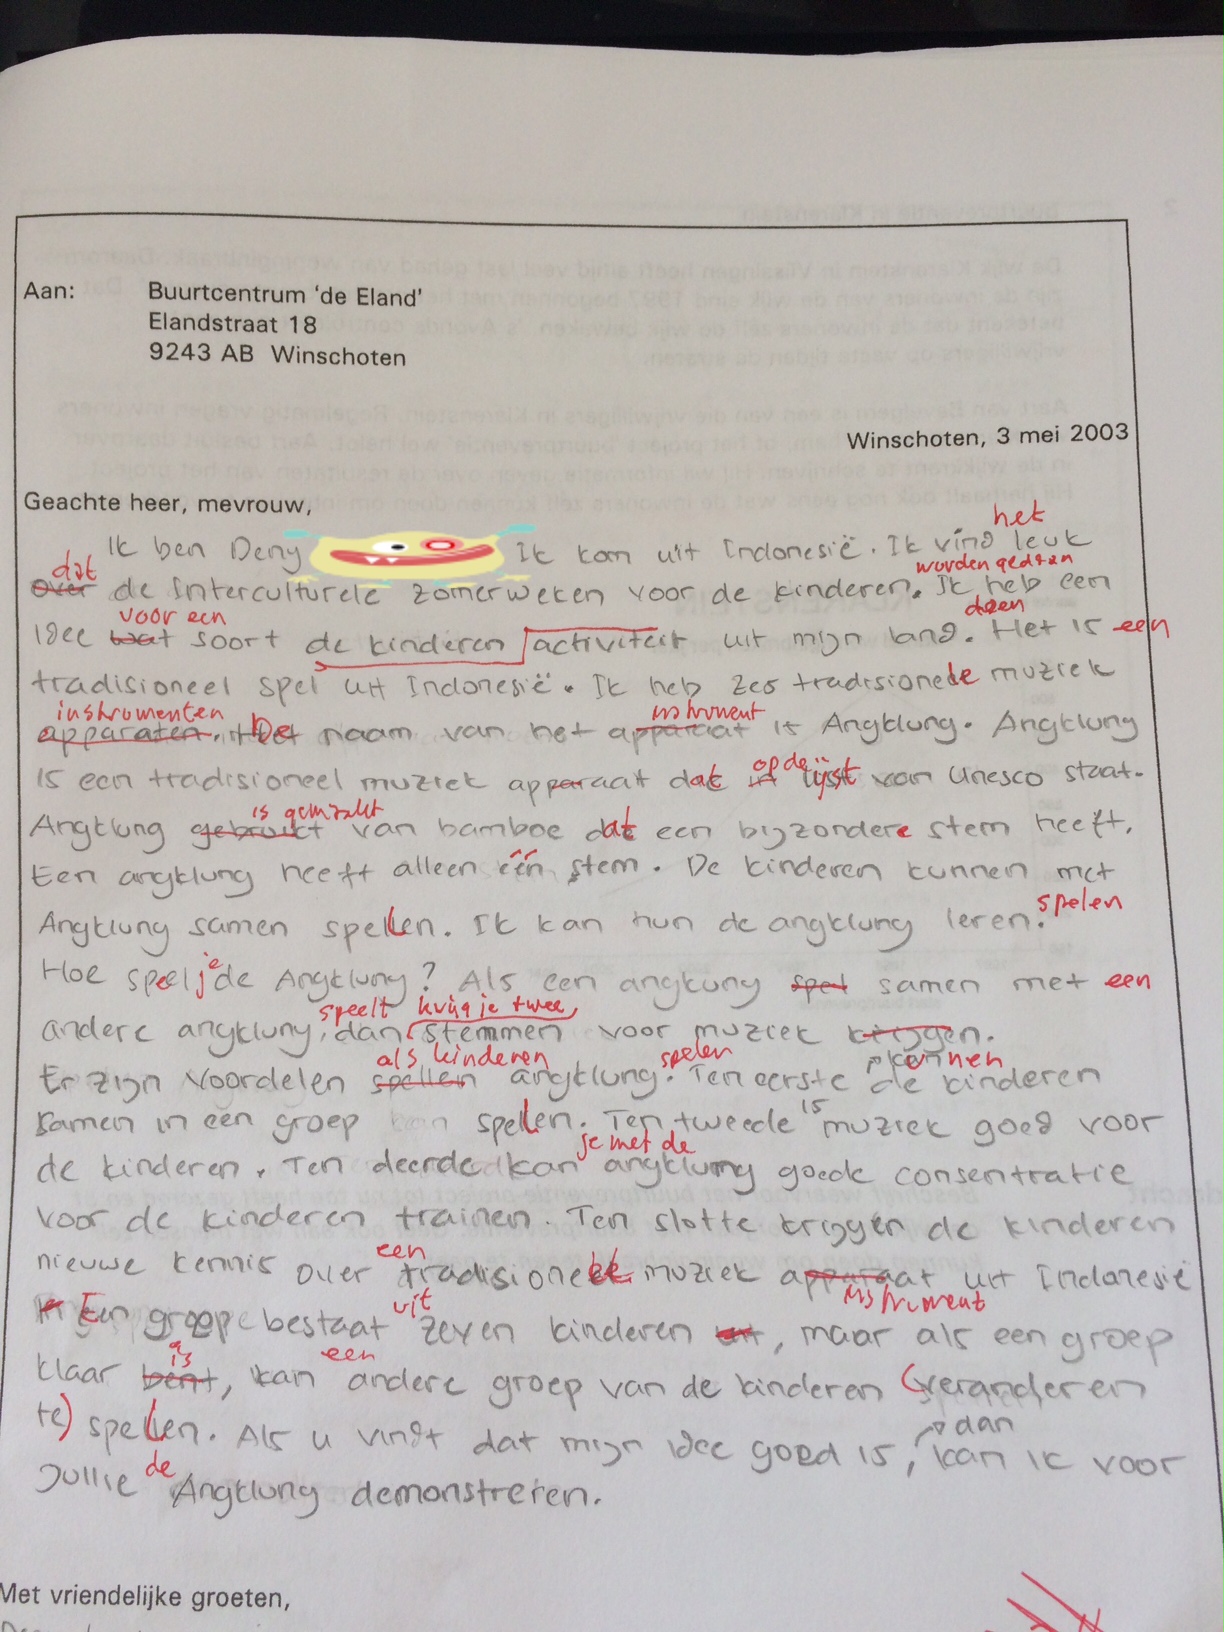 Aan: Buurtcentrum 'de Eland'
Elandstraat 18
9243 AB Winschoten
Winschoten, 3 mei 2003
Geachte heer, mevrouw,
het
Ik ben Deny Ik kom uit Indonesië. Ik vind leuk
dat worden gedaan
over de Interculturele zomerweken voor de kinderen. Ik heb een
voor een doen
idee wat soort de kinderen activiteit uit mijn land. Het is een
tradisioneel spel uit Indonesië. Ik heb zes tradisionele muziek
instrumenten instrument
apparaten. De naam van het apparaat is Angklung. Angklung
op de
is een tradisioneel muziek apparaat dat in lijst van Unesco staat.
is gemaakt
Angklung gebruikt van bamboe dat een bijzondere stem heeft.
Een angklung heeft alleen één stem. De kinderen kunnen met
spelen
Angklung samen spellen. Ik kan hun de angklung leren.
je
Hoe speel de Angklung? Als een angklung spel samen met een
speelt krijg je twee
andere angklung, dan stemmen voor muziek krijgen.
als kinderen spelen kunnen
Er zijn voordelen spellen angklung. Ten eerste de kinderen
samen in een groep kan spellen. Ten tweede is muziek goed voor
je met de
de kinderen. Ten deerde kan angklung goede consentratie
voor de kinderen trainen. Ten slotte krijgen de kinderen
een
nieuwe kennis over tradisioneel muziek apparaat uit Indonesië
uit instrument
Een groep bestaat zeven kinderen uit, maar als een groep
is een
klaar bent, kan andere groep van de kinderen (veranderen
dan
te) spellen. Als u vindt dat mijn idee goed is, kan ik voor
de
Jullie Angklung demonstreren.
Met vriendelijke groeten,